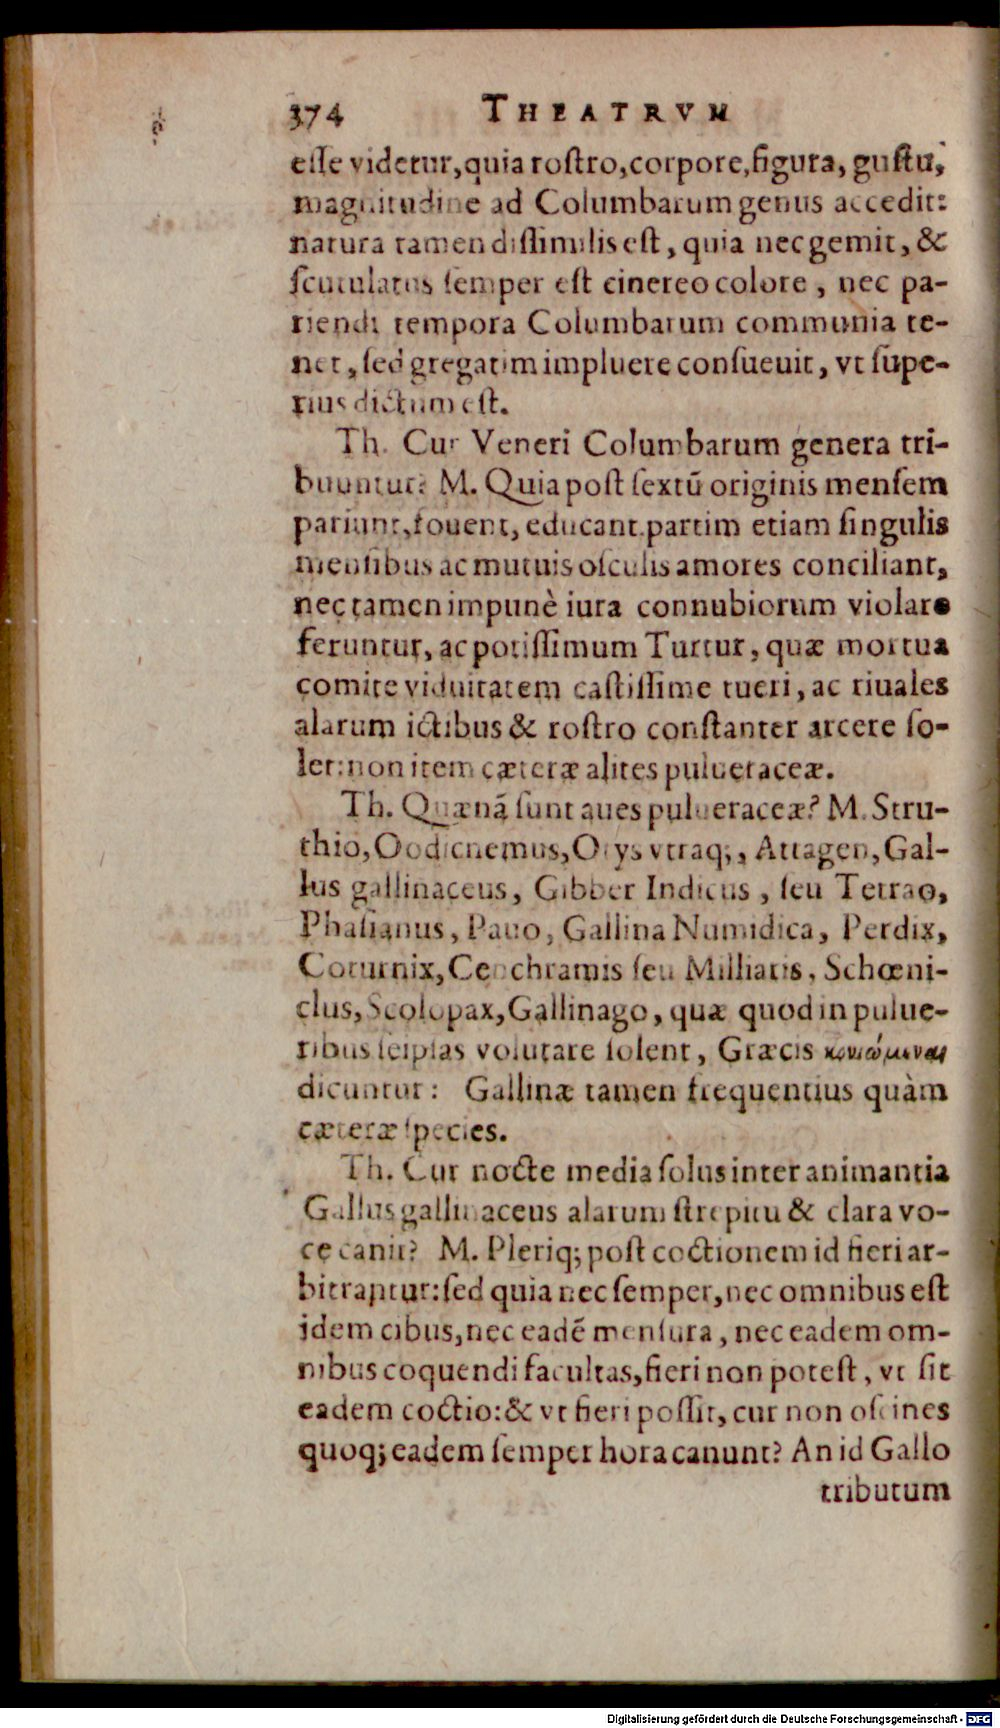 374 THEATRVM
esse videtur, quia rostro, corpore, figura, gustu,
magnitudine ad Columbarum genus accedit:
natura tamen dissimilis est, quia nec gemit, &
scutulatus semper est cinereo colore, nec pa-
riendi tempora Columbarum communia te-
net, sed gregatim impluere consueuit, vt supe-
rius dictum est.
Th. Cur Veneri Columbarum genera tri-
buuntur? M. Quia post sextū originis mensem
pariunt, fouent, educant. partim etiam singulis
mensibus ac mutuis osculis amores conciliant,
nec tamen impunè iura connubiorum violare
feruntur, ac potissimum Turtur, quæ mortua
comite viduitatem castissime tueri, ac riuales
alarum ictibus & rostro constanter arcere so-
let: non item cæteræ alites pulueraceæ.
Th. Quænā sunt aues pulueraceæ? M. Stru-
thio, Oodicnemus, Otys vtraq;, Attagen, Gal-
lus gallinaceus, Gibber Indicus, seu Tetrao,
Phasianus, Pauo, Gallina Numidica, Perdix,
Coturnix, Cenchramis seu Milliaris, Schœni-
clus, Scolopax, Gallinago, quæ quod in pulue-
ribus seipsas volutare solent, Græcis κονιώμεναι
dicuntur: Gallinæ tamen frequentius quàm
cæteræ species.
Th. Cur nocte media solus inter animantia
Gallus gallinaceus alarum strepitu & clara vo-
ce canit? M. Pleriq; post coctionem id fieri ar-
bitrantur: sed quia nec semper, nec omnibus est
idem cibus, nec eadē mensura, nec eadem om-
nibus coquendi facultas, fieri non potest, vt sit
eadem coctio: & vt fieri possit, cur non oscines
quoq; eadem semper hora canunt? An id Gallo
tributum
Digitalisierung gefördert durch die Deutsche Forschungsgemeinschaft - DFG